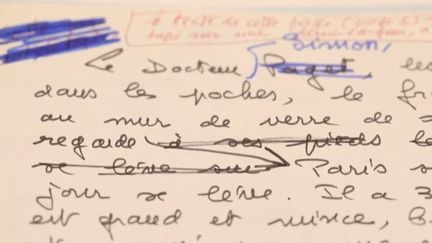 le texte de cette page (partie 2)
tapé sur une
Simon,
Le Docteur Paget, les
dans les poches, le fr
au mur de verre de
regarde à ses pieds le
se lève sur Paris s
jour se lève. Il a 3
est grand et mince,